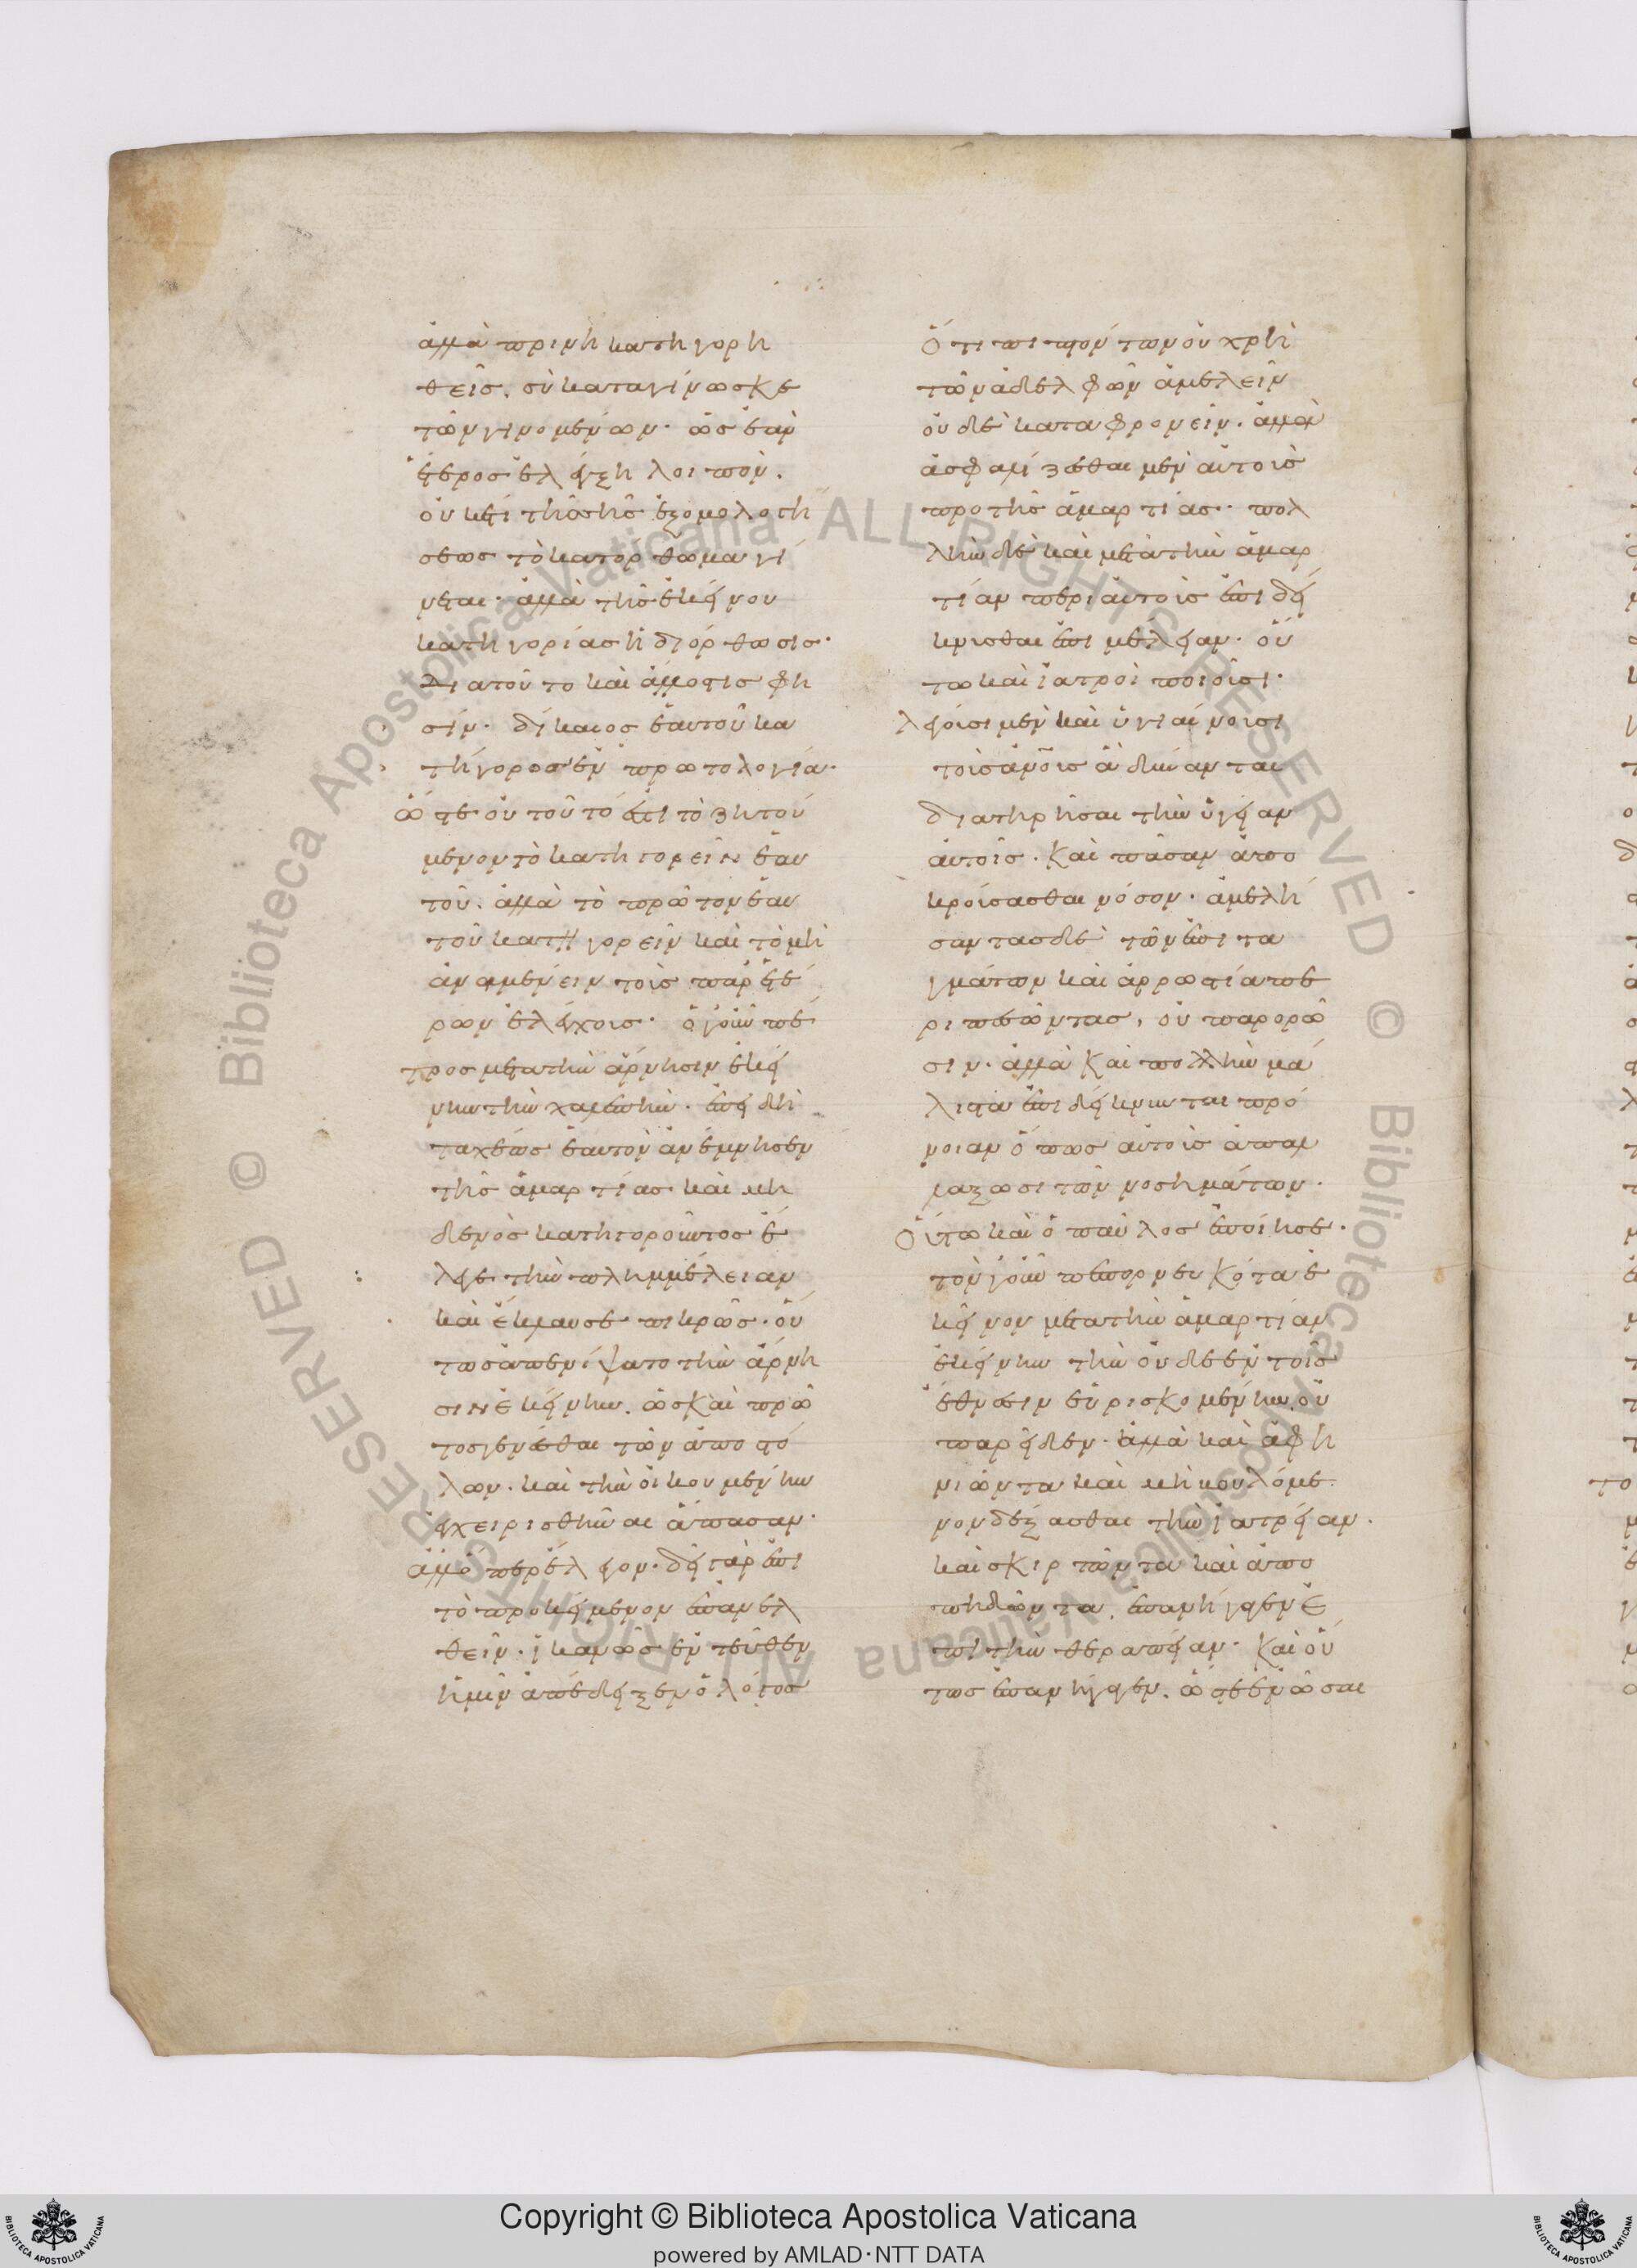 ἀλλὰ πρινὴ κατηγορη
θεῖσ. σὺ καταγίνωσκε
τῶν γινομένων. ὡσ ἐὰν
ἕτεροσ ἐλέγξη λοιπὸν.
οὐκέτι τῆσ σῆσ ἐξομολογή
σεωσ τὸ κατόρθωμα γί
νεται. ἀλλὰ τῆσ ἐκείνου
κατηγορίασ ἡ διόρθωσισ.
διατοῦτο καὶ ἄλλοστισ φη
σίν. δίκαιοσ ἑαυτοῦ κα
τήγοροσ ἐν πρωτολογία.
ὥστε οὐ τοῦτό ἐστι τὸ ζητού
μενον τὸ κατηγορεῖν ἑαυ
τοῦ. ἀλλὰ τὸ πρῶτον ἑαυ
τοῦ κατηγορεῖν καὶ τὸ μὴ
ἀναμένειν τοὺσ παρ ἑτέ
ρων ἐλέγχουσ. ὁ γοῦν πέ
τροσ μετὰ τὴν ἄρνησιν ἐκεί
νην τὴν χαλεπὴν. ἐπειδὴ
ταχέωσ ἑαυτὸν ἀνέμνησεν
τῆσ ἁμαρτίασ καὶ μη
δενὸσ κατηγοροῦντοσ ἔ
λεγε τὴν πλημμέλειαν
καὶ ἔκλαυσε πικρῶσ. οὕ
τωσ ἀπενίψατο τὴν ἄρνη
σιν ἐκείνην. ὡσ καὶ πρῶ
τοσ γενέσθαι τῶν ἀποστό
λων. καὶ τὴν οἰκουμένην
ἐγχειρισθῆναι ἅπασαν.
ἀλλ' ὅπερ ἔλεγον. δεῖ γὰρ ἐπι
τὸ προκείμενον ἐπανελ
θεῖν. ἱκανῶσ ἐντεῦθεν
ἡμῖν ἀπέδειξεν ὁ λόγοσ
Ὅτι πιπτόντων οὐ χρὴ
τῶν ἀδελφῶν ἀμελεῖν
οὐδὲ καταφρονεῖν. ἀλλὰ
ἀσφαλίζεσθαι μὲν αὐτοὺσ
πρὸ τῆσ ἁμαρτίασ. πολ
λὴν δὲ καὶ μετὰ τὴν ἁμαρ
τίαν περὶ αὐτοὺσ ἐπιδεί
κνυσθαι ἐπιμέλειαν. οὕ
τω καὶ ἰατροὶ ποιοῦσι.
λέγουσι μὲν καὶ ὑγιαίνουσι
τοῖσ ἀνοισ ἃ δύνανται
διατηρῆσαι τὴν ὑγείαν
αὐτοῖσ. καὶ πᾶσαν ἀπο
κρούσασθαι νόσον. ἀμελή
σαντασ δὲ τῶν ἐπιτα
γμάτων καὶ ἀρρωστία πε
ριπεσόντασ, οὐ παρορῶ
σιν. ἀλλὰ καὶ πολλὴν μά
λιστα ἐπιδείκνυνται πρό
νοιαν ὅπωσ αὐτοὺσ ἀπαλ
λάξωσι τῶν νοσημάτων.
Οὕτω καὶ ὁ παῦλοσ ἐποίησε.
τὸν γοῦν πεπορνευκότα ἐ
κεῖνον μετὰ τὴν ἁμαρτίαν
ἐκείνην τὴν οὐδὲ ἐν τοῖσ
ἔθνεσιν εὑρισκομένην, οὐ
παρεῖδεν. ἀλλὰ καὶ ἀφη
νιῶντα καὶ μὴ βουλόμε
νον δέξασθαι τὴν ἰατρείαν.
καὶ σκιρτῶντα καὶ ἀπο
πηδῶντα, ἐπανήγαγεν ἐ
πὶ τὴν θεραπείαν. καὶ οὕ
τωσ ἐπανήγαγεν, ὥστε ἑνῶσαι
Copyright © Biblioteca Apostolica Vaticana
powered by AMLAD·NTT DATA